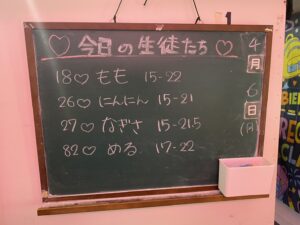 ♡ 今日の生徒たち ♡
4月6日(月)
18♡もも 15-22
26♡にんにん 15-21
27♡なぎさ 15-21.5
82♡める 17-22